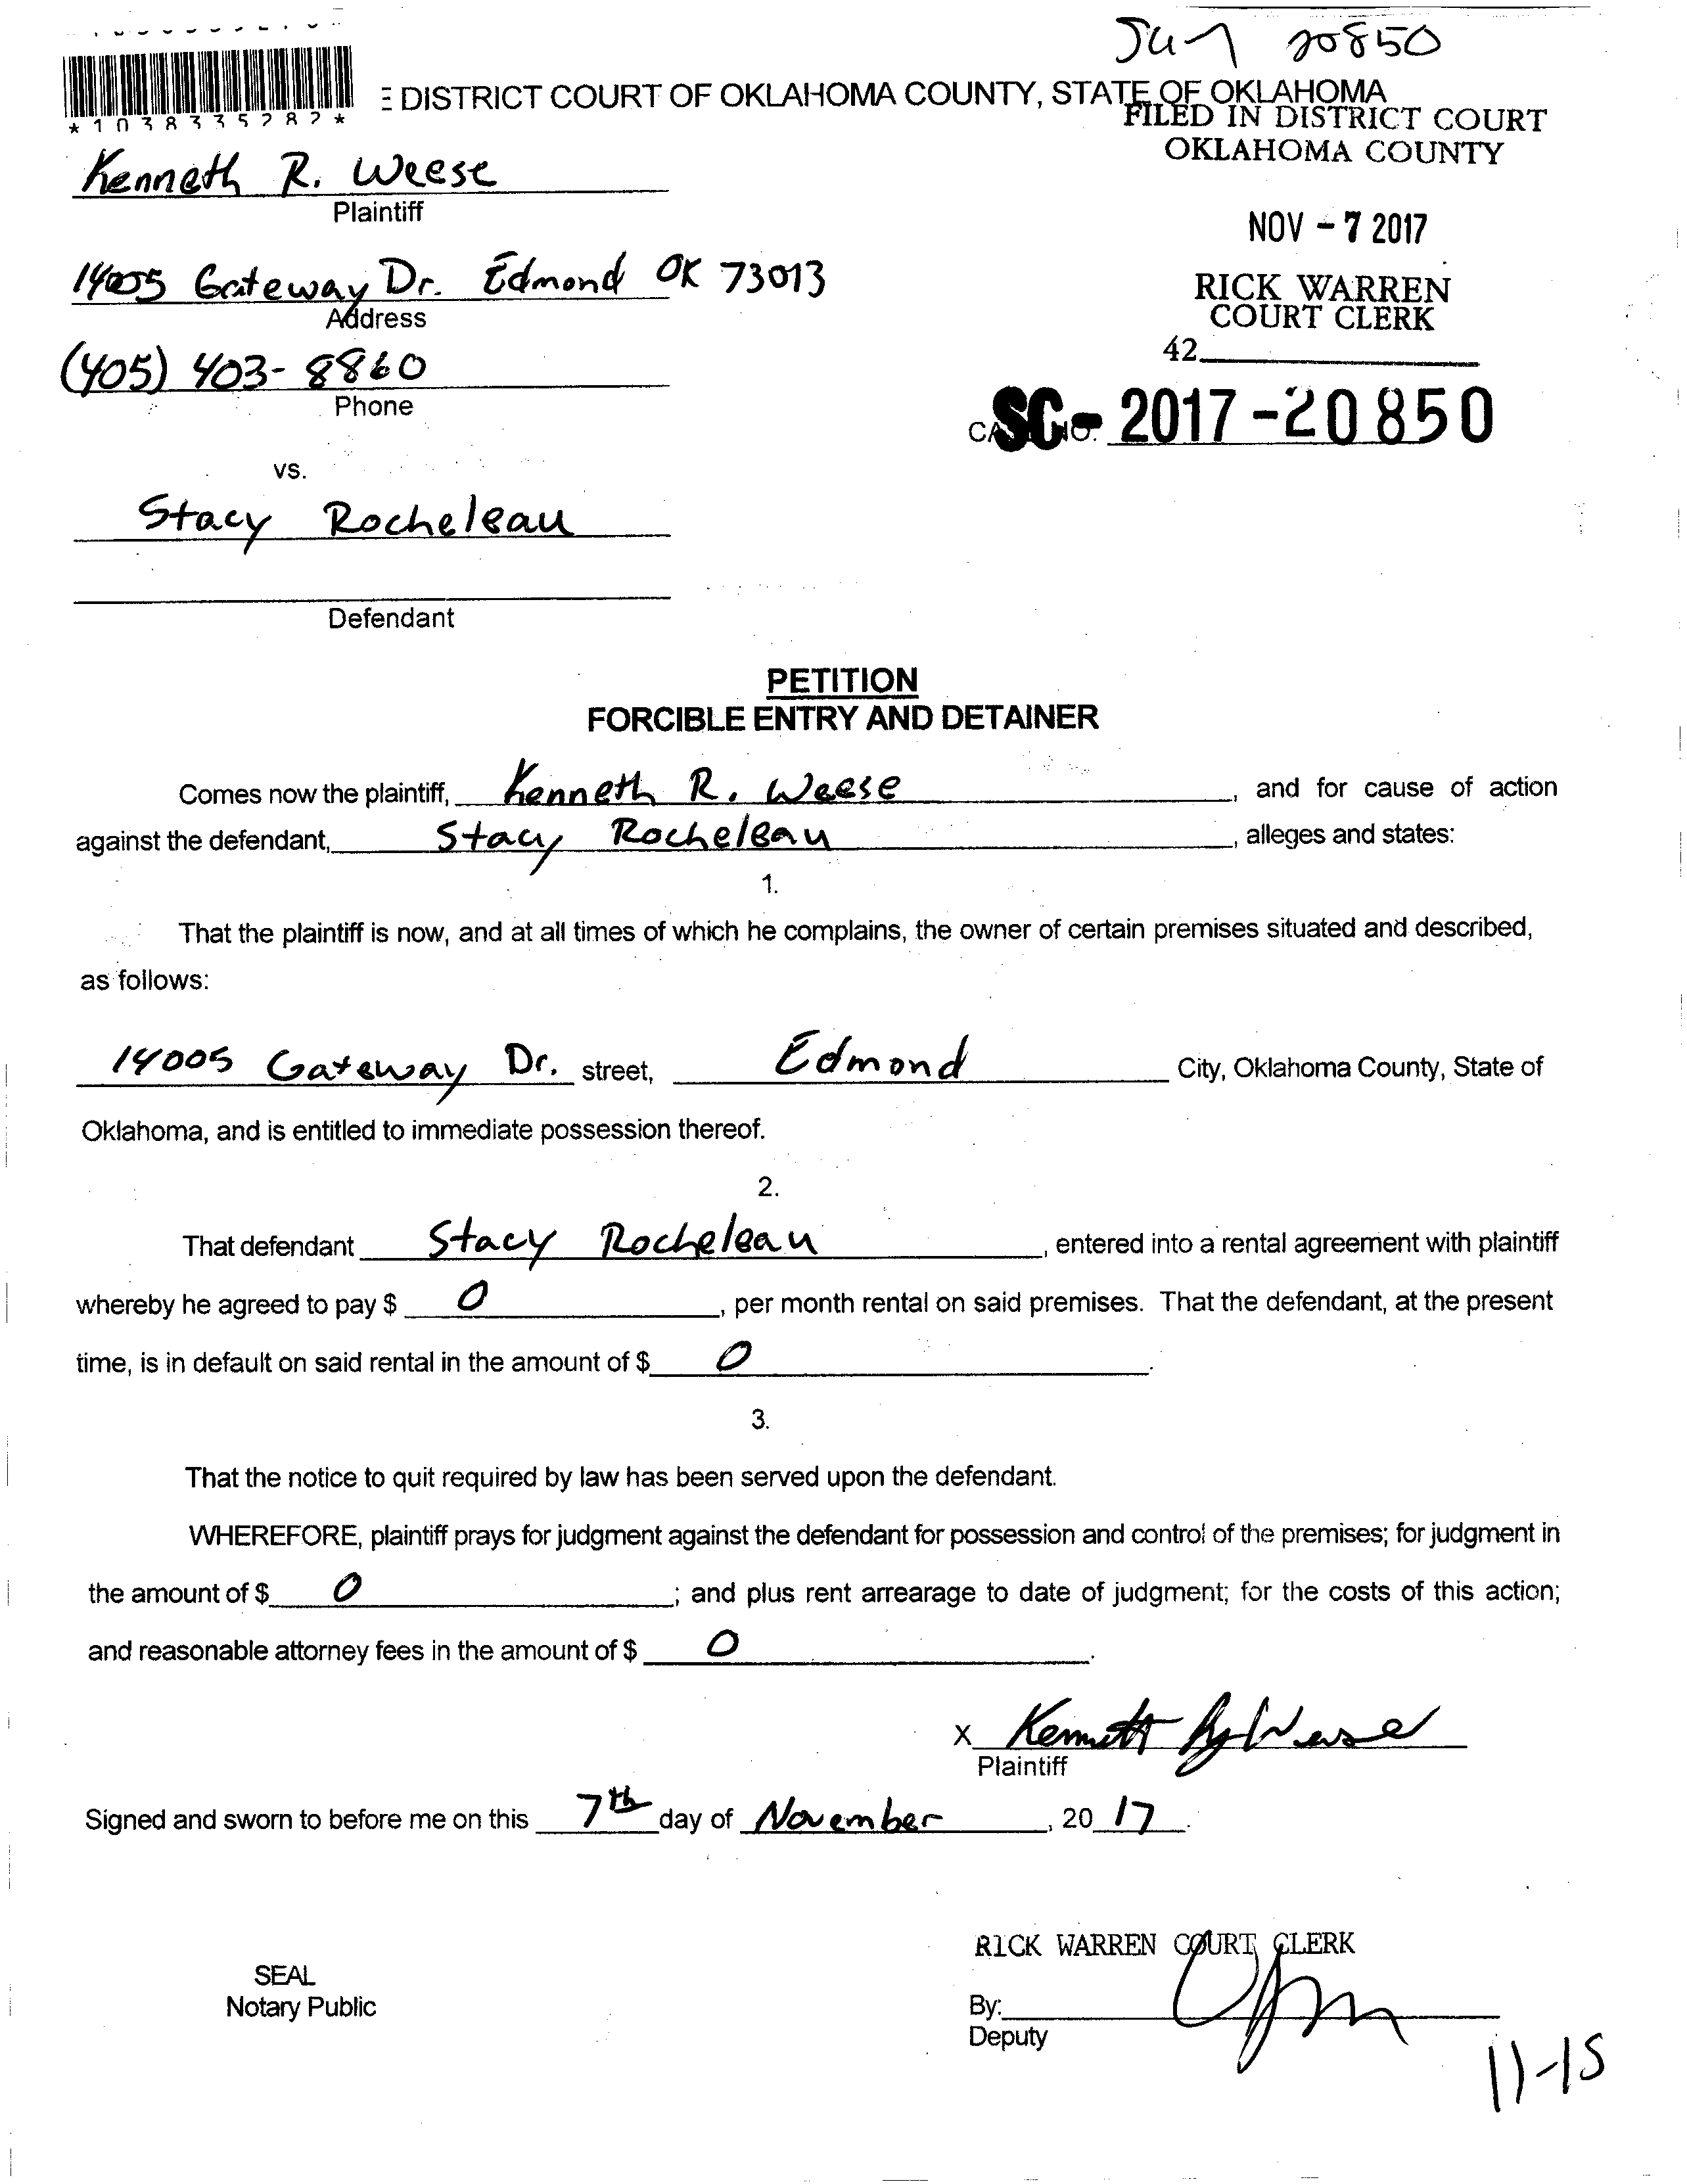 20850
DISTRICT COURT OF OKLAHOMA COUNTY, STATE OF OKLAHOMA
*1038335282*
FILED IN DISTRICT COURT
OKLAHOMA COUNTY
Kenneth R. Weese
Plaintiff
NOV - 7 2017
14005 Gateway Dr. Edmond OK 73013
Address
RICK WARREN
COURT CLERK
42
(405) 403-8860
Phone
SC- 2017-20850
vs.
Stacy Rocheleau
Defendant
PETITION
FORCIBLE ENTRY AND DETAINER
Comes now the plaintiff, Kenneth R. Weese, and for cause of action
against the defendant, Stacy Rocheleau, alleges and states:
1.
That the plaintiff is now, and at all times of which he complains, the owner of certain premises situated and described,
as follows:
14005 Gateway Dr. street, Edmond City, Oklahoma County, State of
Oklahoma, and is entitled to immediate possession thereof.
2.
That defendant Stacy Rocheleau, entered into a rental agreement with plaintiff
whereby he agreed to pay $ 0, per month rental on said premises. That the defendant, at the present
time, is in default on said rental in the amount of $ 0.
3.
That the notice to quit required by law has been served upon the defendant.
WHEREFORE, plaintiff prays for judgment against the defendant for possession and control of the premises; for judgment in
the amount of $ 0; and plus rent arrearage to date of judgment; for the costs of this action;
and reasonable attorney fees in the amount of $ 0.
X Kenneth Weese
Plaintiff
Signed and sworn to before me on this 7th day of November, 2017.
RICK WARREN COURT CLERK
SEAL
Notary Public
By:
Deputy
11-15